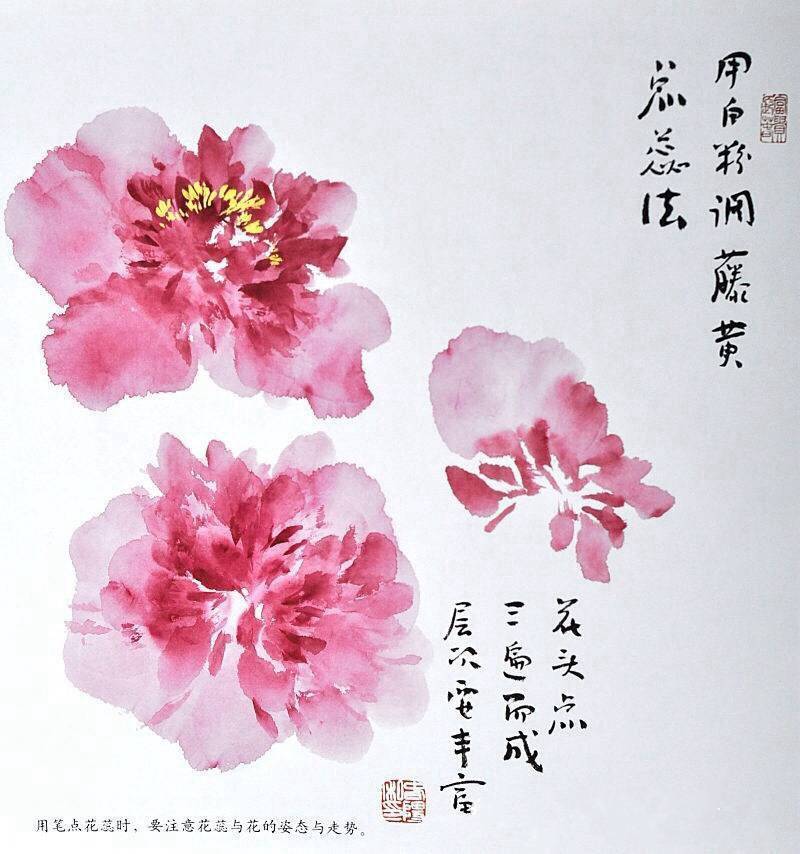 用白粉调藤黄
点蕊法
花头点
三遍而成
层次要丰富
用笔点花蕊时，要注意花蕊与花的姿态与走势。